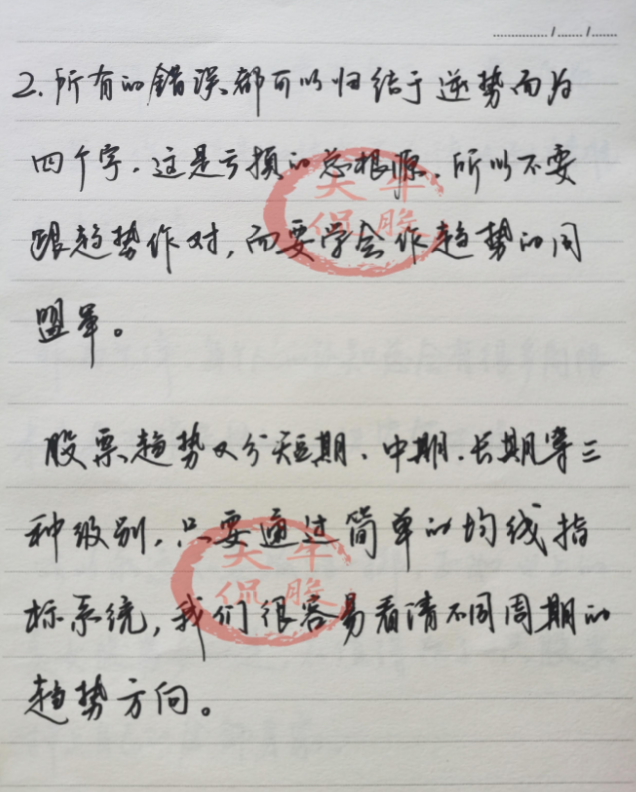 2.所有的错误都可以归结于逆势而为
四个字.这是亏损的总根源.所以不要
跟趋势作对,而要学会作趋势的同
盟军。
股票趋势又分短期、中期.长期等三
种级别.只要通过简单的均线指
标系统,我们很容易看清不同周期的
趋势方向。
大牛
侃股
大牛
侃股